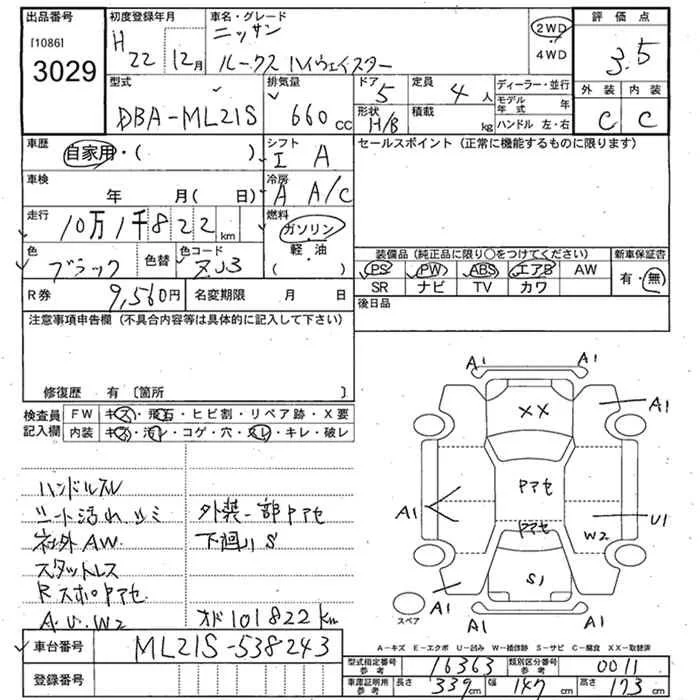 出品番号 初度登録年月 車名・グレード 評価点
[1086] 3029
H 22 12月
ニッサン
ルークス ハイウェイスター
2WD
4WD
3.5
外装 内装
C C
型式 排気量 ドア 定員 ディーラー・並行
DBA-ML21S 660cc 5 4人
モデル年式 年
形状 積載 ハンドル 左・右
H/B kg
車歴 シフト セールスポイント (正常に機能するものに限ります)
自家用・( ) I A
車検 冷房
年 月( 日) A A/C
走行 燃料
10万1千822km ガソリン
軽・油
( )
色 色替 色コード
ブラック ZJ3
装備品(純正品に限り○をつけてください) 新車保証書
PS PW ABS エアB AW 有・無
SR ナビ TV カワ
R券 9,560円 名変期限 月 日
後日品
注意事項申告欄(不具合内容等は具体的に記入して下さい)
修復歴 有 〔箇所 〕
検査員 FW キズ・飛石・ヒビ割・リペア跡・X要
記入欄 内装 キズ・汚レ・コゲ・穴・スレ・キレ・破レ
ハンドルスレ
シート汚れ シミ 外装一部Pアセ
社外AW 下廻りS
スタットレス
RスポロPアセ
A.U.W2 オド 101822km
A1 A1
XX A1
Pアセ
A1 U1
Pアセ W2
S1
A1 A1
A1 A1
スペア
A-キズ E-エクボ U-凹み W-補修跡 S-サビ C-腐食 XX-取替済
車台番号 ML21S-538243
登録番号
型式指定番号 参考 16363 類別区分番号 参考 0011
車庫証明用 参考 長さ 339cm 幅 147cm 高さ 173cm